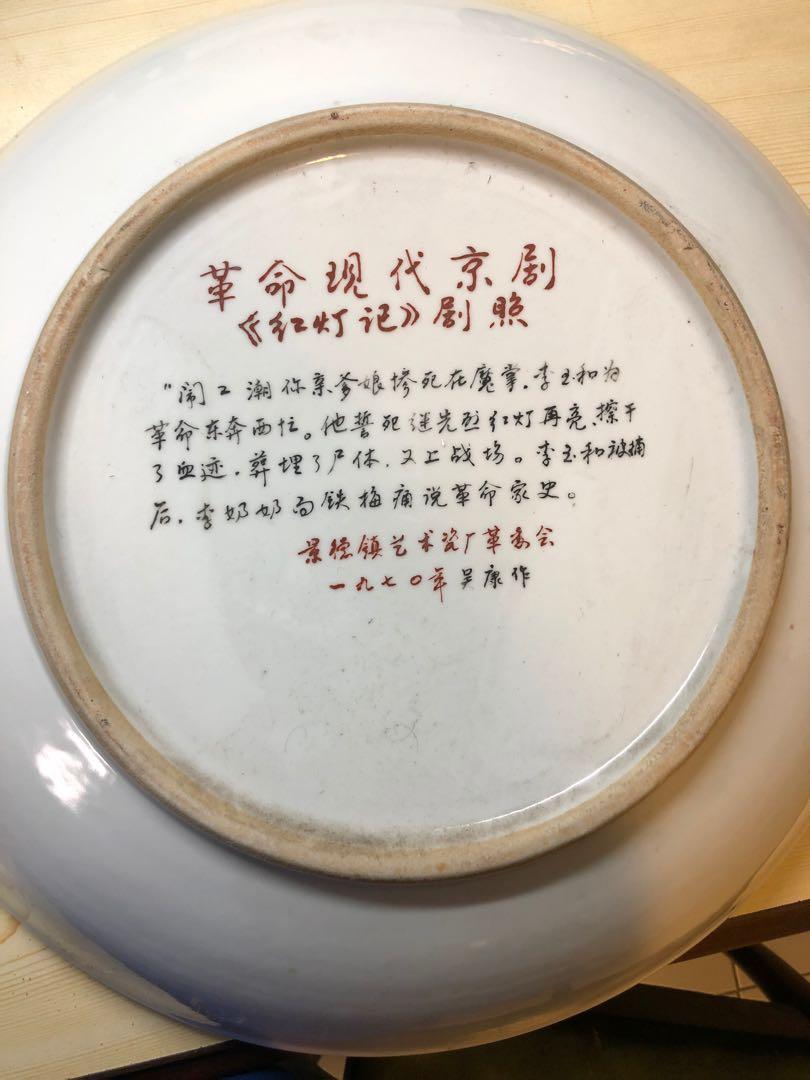 革命现代京剧
《红灯记》剧照
"闹工潮你亲爹娘惨死在魔掌，李玉和为
革命东奔西忙。他誓死继先烈红灯再亮、擦干
了血迹，葬埋了尸体，又上战场。李玉和被捕
后，李奶奶向铁梅痛说革命家史。
景德镇艺术瓷厂革委会
一九七〇年 吴康作